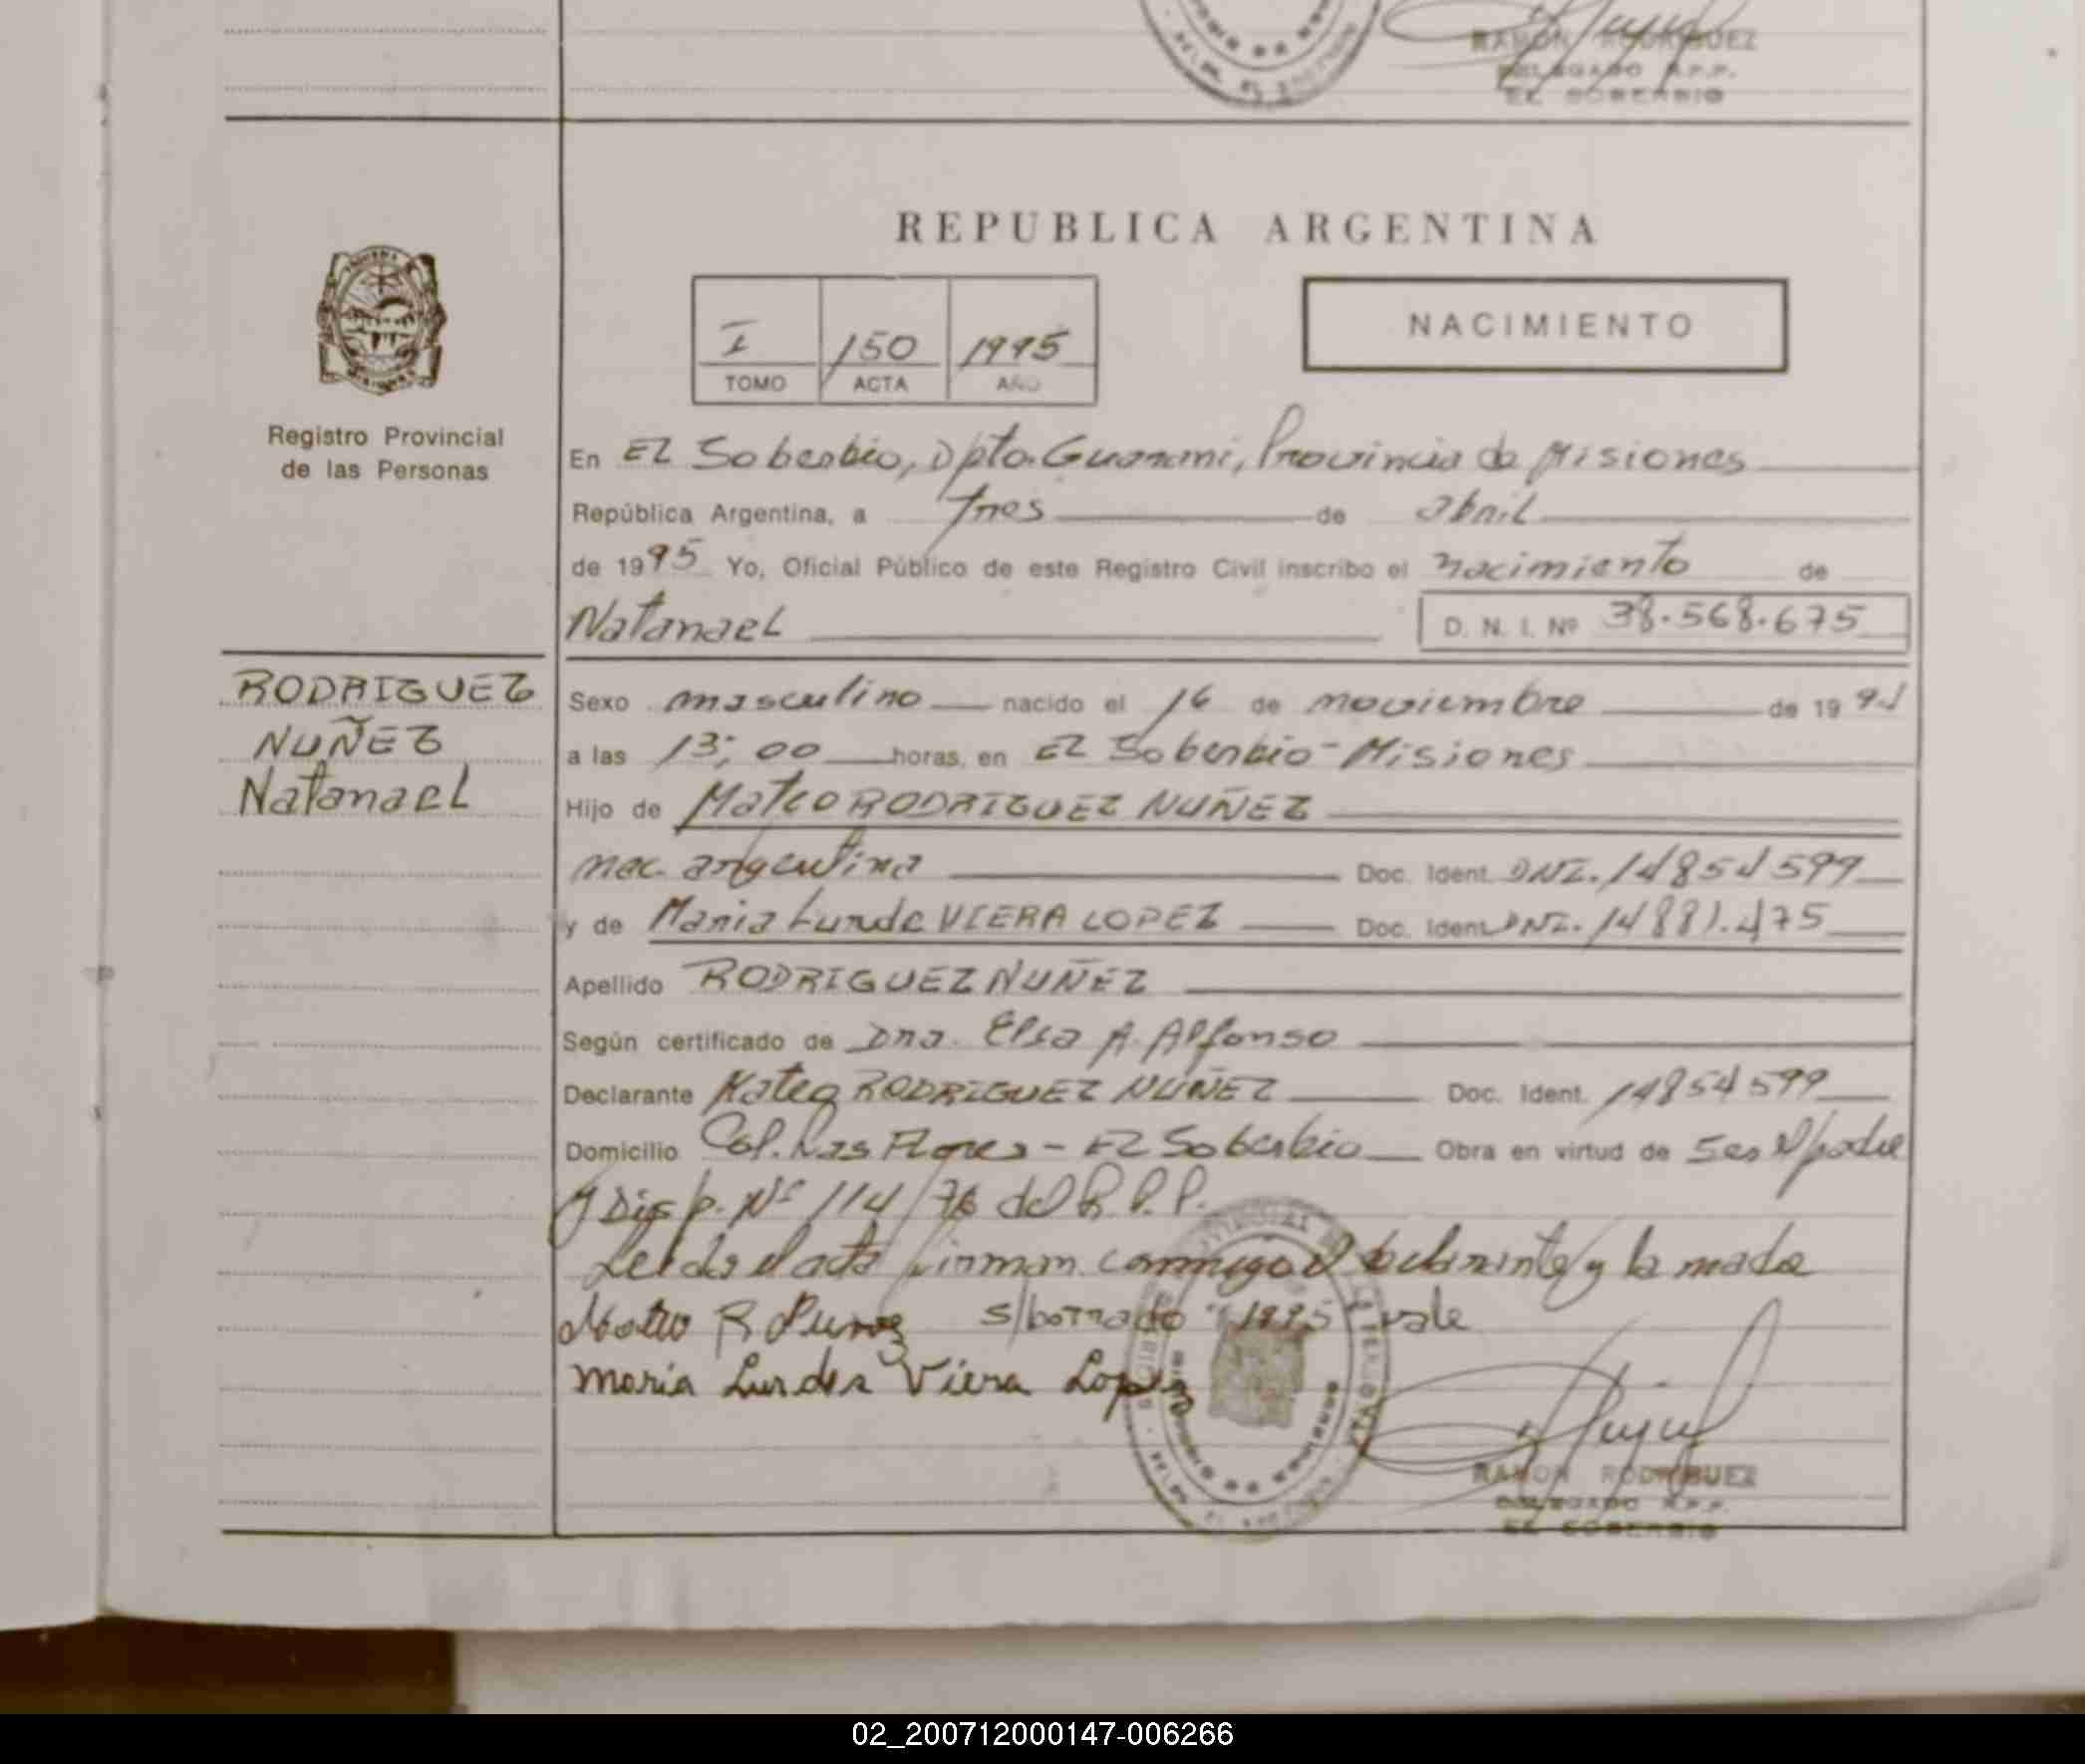 RAMON RODRIGUEZ
DELEGADO R.P.P.
EL SOBERBIO
REPUBLICA ARGENTINA
I
150
1995
TOMO
ACTA
AÑO
NACIMIENTO
Registro Provincial
de las Personas
En El Soberbio, Dpto. Guarani, Provincia de Misiones
República Argentina, a tres de abril
de 1995 Yo, Oficial Público de este Registro Civil inscribo el nacimiento de
Natanael
D. N. I. Nº 38.568.675
RODRIGUEZ
NUÑEZ
Natanael
Sexo masculino nacido el 16 de noviembre de 1994
a las 13;00 horas, en El Soberbio - Misiones
Hijo de Mateo RODRIGUEZ NUÑEZ
nac. argentina Doc. Ident. DNI. 14854599
y de Maria Lurde VIERA LOPEZ Doc. Ident. DNI. 14881.475
Apellido RODRIGUEZ NUÑEZ
Según certificado de Dra. Elsa A. Alfonso
Declarante Mateo RODRIGUEZ NUÑEZ Doc. Ident. 14854599
Domicilio Col. Las Flores - El Soberbio Obra en virtud de ser el padre
y Disp. Nº 114/76 del R.P.P.
Leida el acta firman conmigo el declarante y la madre
Mateo R Nunez s/borrado "1995" vale
Maria Lurdes Viera Lopez
RAMON RODRIGUEZ
DELEGADO R.P.P.
EL SOBERBIO
02_200712000147-006266